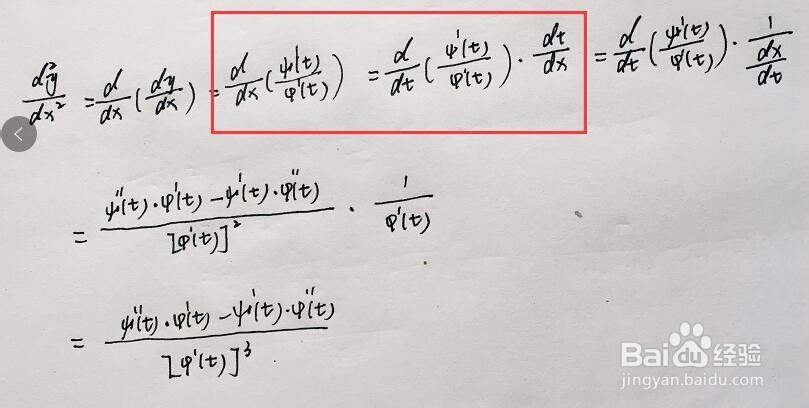 d²y/dx² = d/dx (dy/dx) = d/dx (ψ'(t)/φ'(t)) = d/dt (ψ'(t)/φ'(t)) · dt/dx = d/dt (ψ'(t)/φ'(t)) · 1/(dx/dt)
= (ψ''(t)·φ'(t) − ψ'(t)·φ''(t))/[φ'(t)]² · 1/φ'(t)
= (ψ''(t)·φ'(t) − ψ'(t)·φ''(t))/[φ'(t)]³
Baidu经验
jingyan.baidu.com